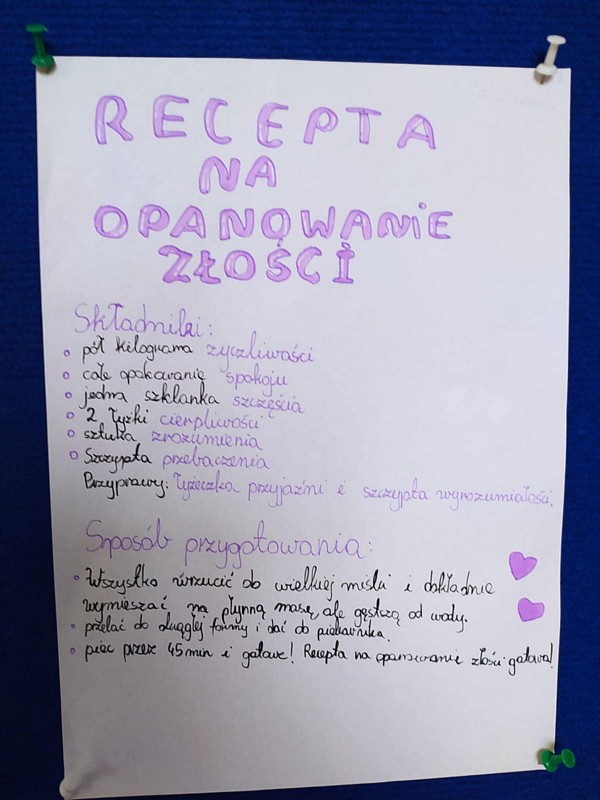 RECEPTA
NA
OPANOWANiE
ZŁOŚCI
Składniki:
pół kilograma życzliwości
całe opakowanie spokoju
jedna szklanka szczęścia
2 łyżki cierpliwości
sztuka zrozumienia
Szczypta przebaczenia
Przyprawy: łyżeczka przyjaźni i szczypta wyrozumiałości.
Sposób przygotowania:
Wszystko wrzucić do wielkiej miski i dokładnie
wymieszać na płynną masę, ale gęstszą od wody.
przelać do okrągłej formy i dać do piekarnika.
piec przez 45 min i gotowe! Recepta na opanowanie złości gotowa!